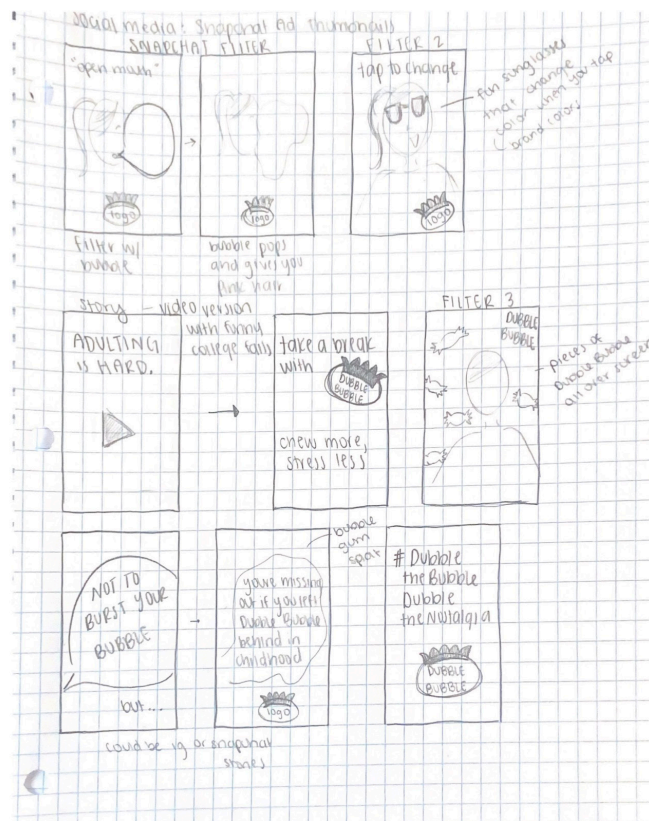 Social media: Snapchat Ad Thumbnails
SNAPCHAT FILTER
"open mouth"
logo
Filter w/
bubble
logo
bubble pops
and gives you
pink hair
FILTER 2
tap to change
logo
fun sunglasses
that change
color when you tap
brand colors
story - video version
with funny
college fails
ADULTING
IS HARD.
take a break
with
DUBBLE
BUBBLE
chew more,
stress less
FILTER 3
DUBBLE
BUBBLE
pieces of
Dubble Bubble
all over screen
NOT TO
BURST YOUR
BUBBLE
but...
bubble
gum
splat
you're missing
out if you left
Dubble Bubble
behind in
childhood
logo
# Dubble
the Bubble
Dubble
the Nostalgia
DUBBLE
BUBBLE
could be ig or snapchat
stories